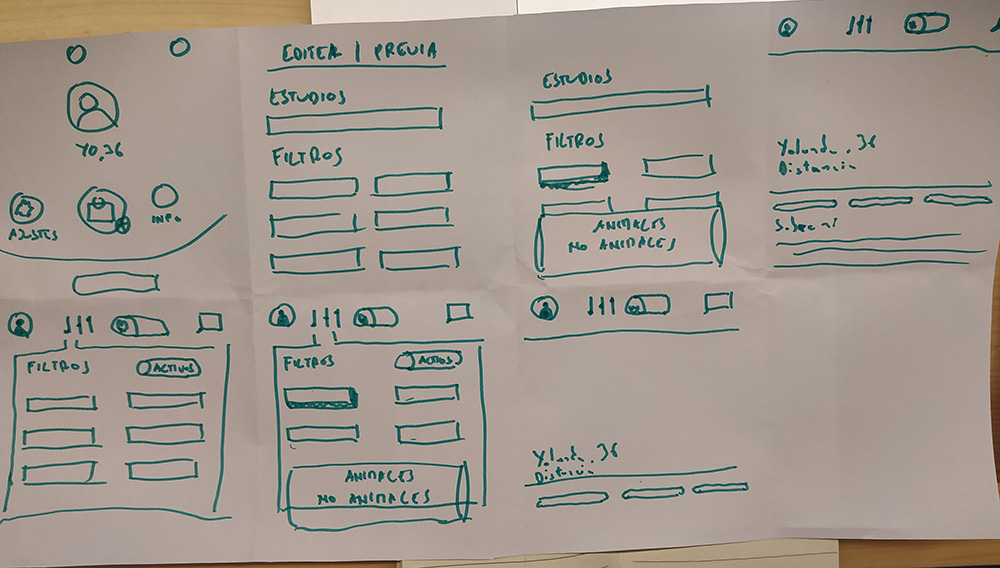 YO, 36
AJUSTES
INFO
EDITER | PREVIA
ESTUDIOS
FILTROS
ESTUDIOS
FILTROS
ANIMALES
NO ANIMALES
Yolanda, 36
Distancia
FILTROS
ACTIVOS
FILTROS
ACTIOS
ANIMALES
NO ANIMALES
Yolanda, 36
Distancia